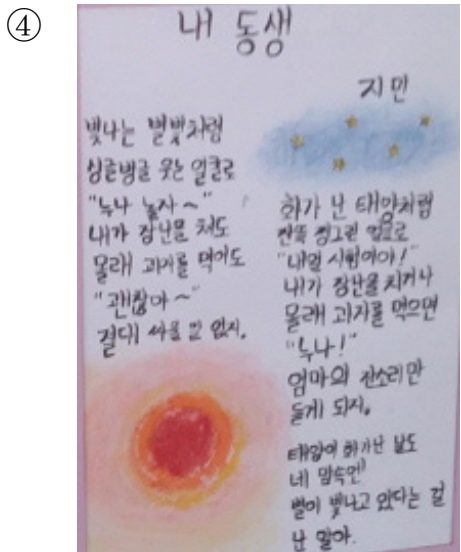 ④
내 동생
지민
빛나는 별빛처럼
싱글벙글 웃는 얼굴로
"누나 놀자~"
내가 장난을 쳐도
몰래 과자를 먹어도
"괜찮아~"
절대 싸울 일 없지.
화가 난 태양처럼
잔뜩 찡그린 얼굴로
"내일 시험이야!"
내가 장난을 치거나
몰래 과자를 먹으면
"누나!"
엄마의 잔소리만
듣게 되지.
태양이 화가난 날도
네 맘속엔
별이 빛나고 있다는 걸
난 알아.